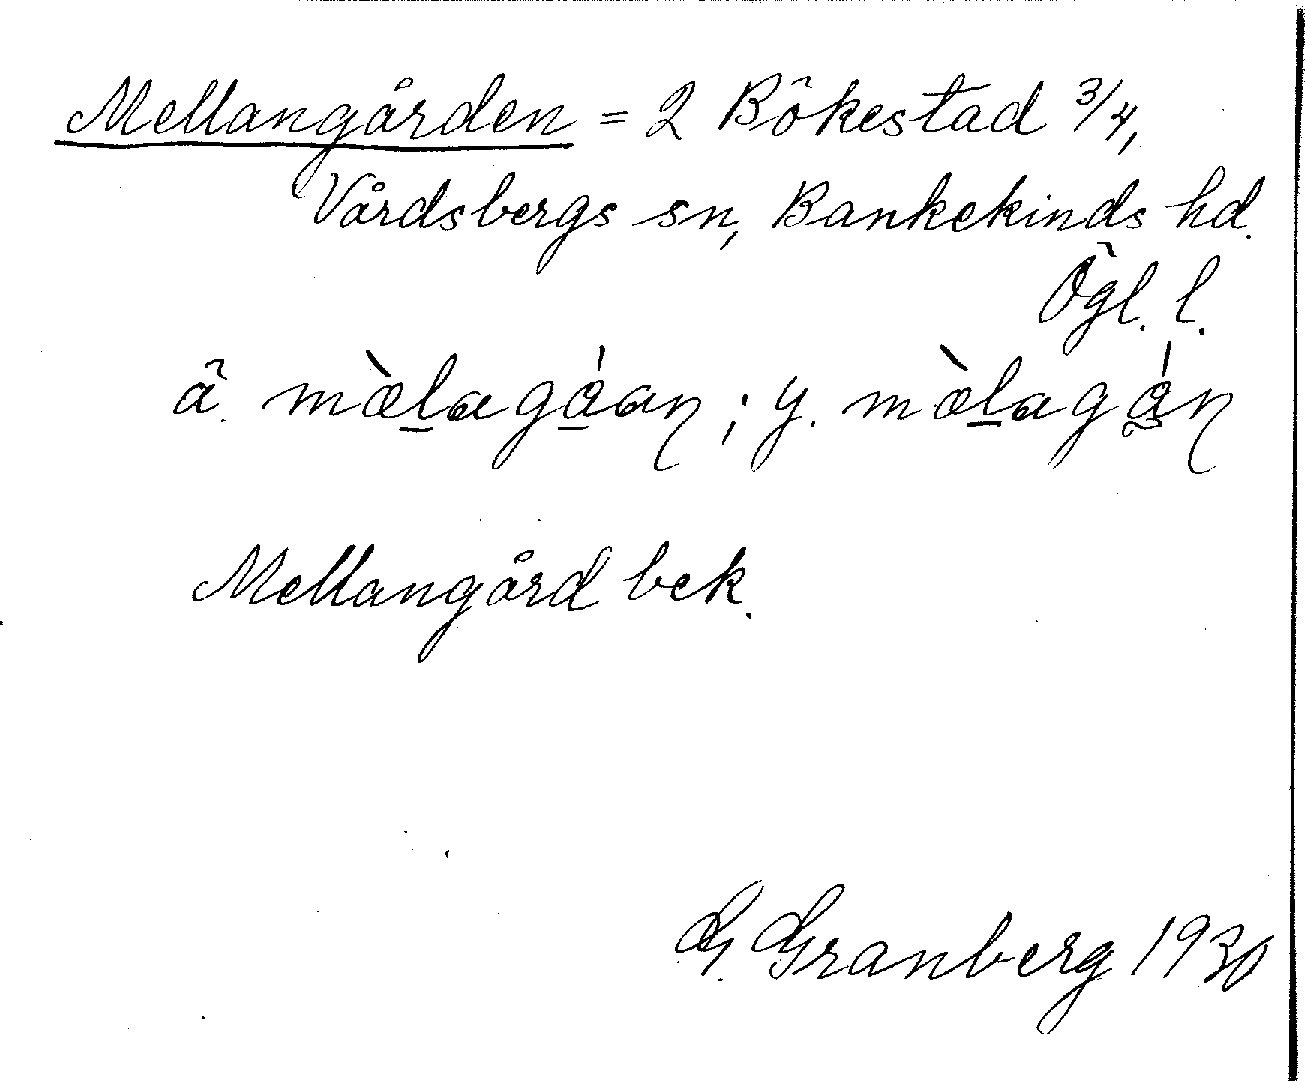 Mellangården = 2 Bökestad 3/4,
Vårdsbergs sn, Bankekinds hd.
Ögl. l.
ä. mæ̀lagåan; y. mæ̀lagån
Mellangård bek.
G. Granberg 1930